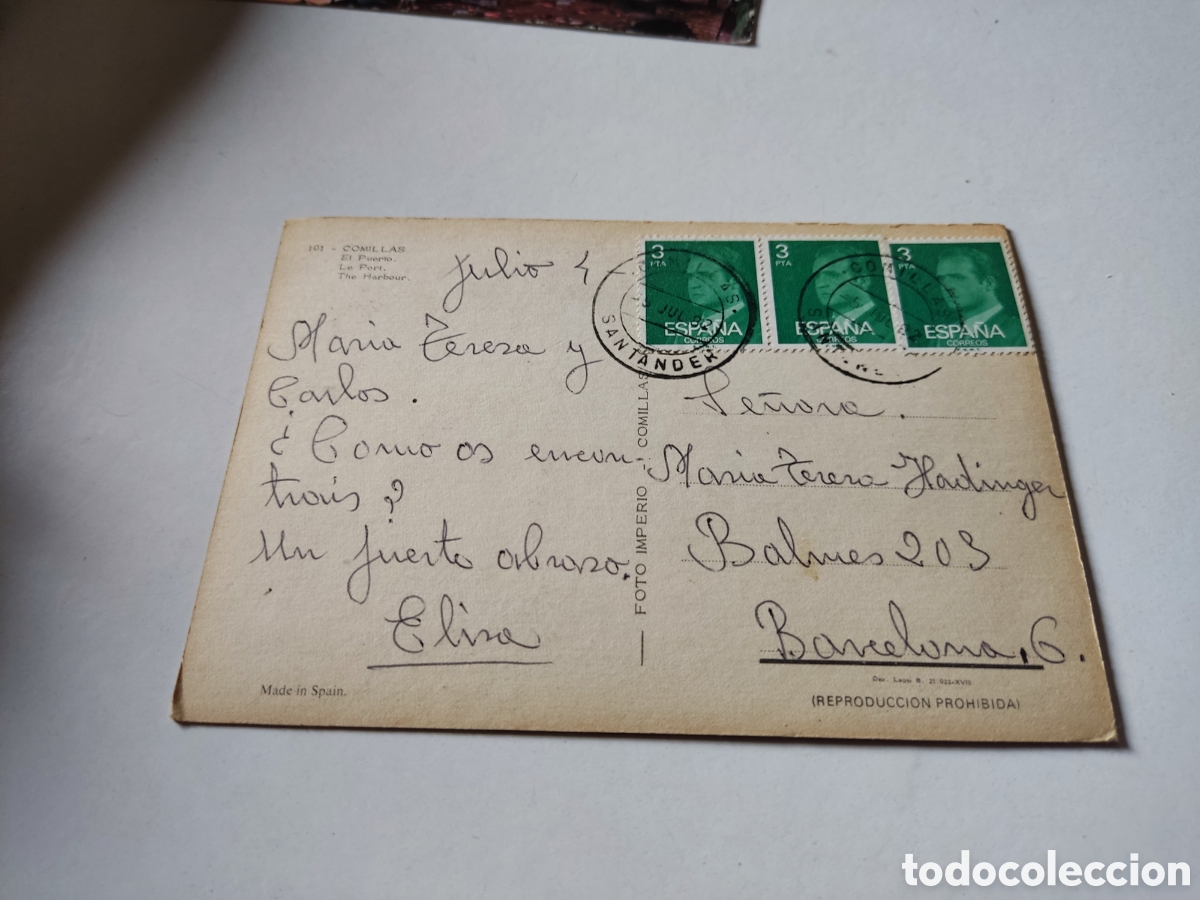 101 - COMILLAS
El Puerto.
Le Port.
The Harbour.
Julio 4
Maria Tereza y
Carlos.
¿Como os encon-
trais?
Un fuerte abrazo.
Eliza
Made in Spain.
FOTO IMPERIO COMILLAS
3 PTA
ESPAÑA
CORREOS
3 PTA
ESPAÑA
CORREOS
3 PTA
ESPAÑA
CORREOS
JUL
SANTANDER
COMILLAS
Señora.
Maria Tereza Hadinger
Balmes 203
Barcelona, 6.
(REPRODUCCION PROHIBIDA)
todocoleccion